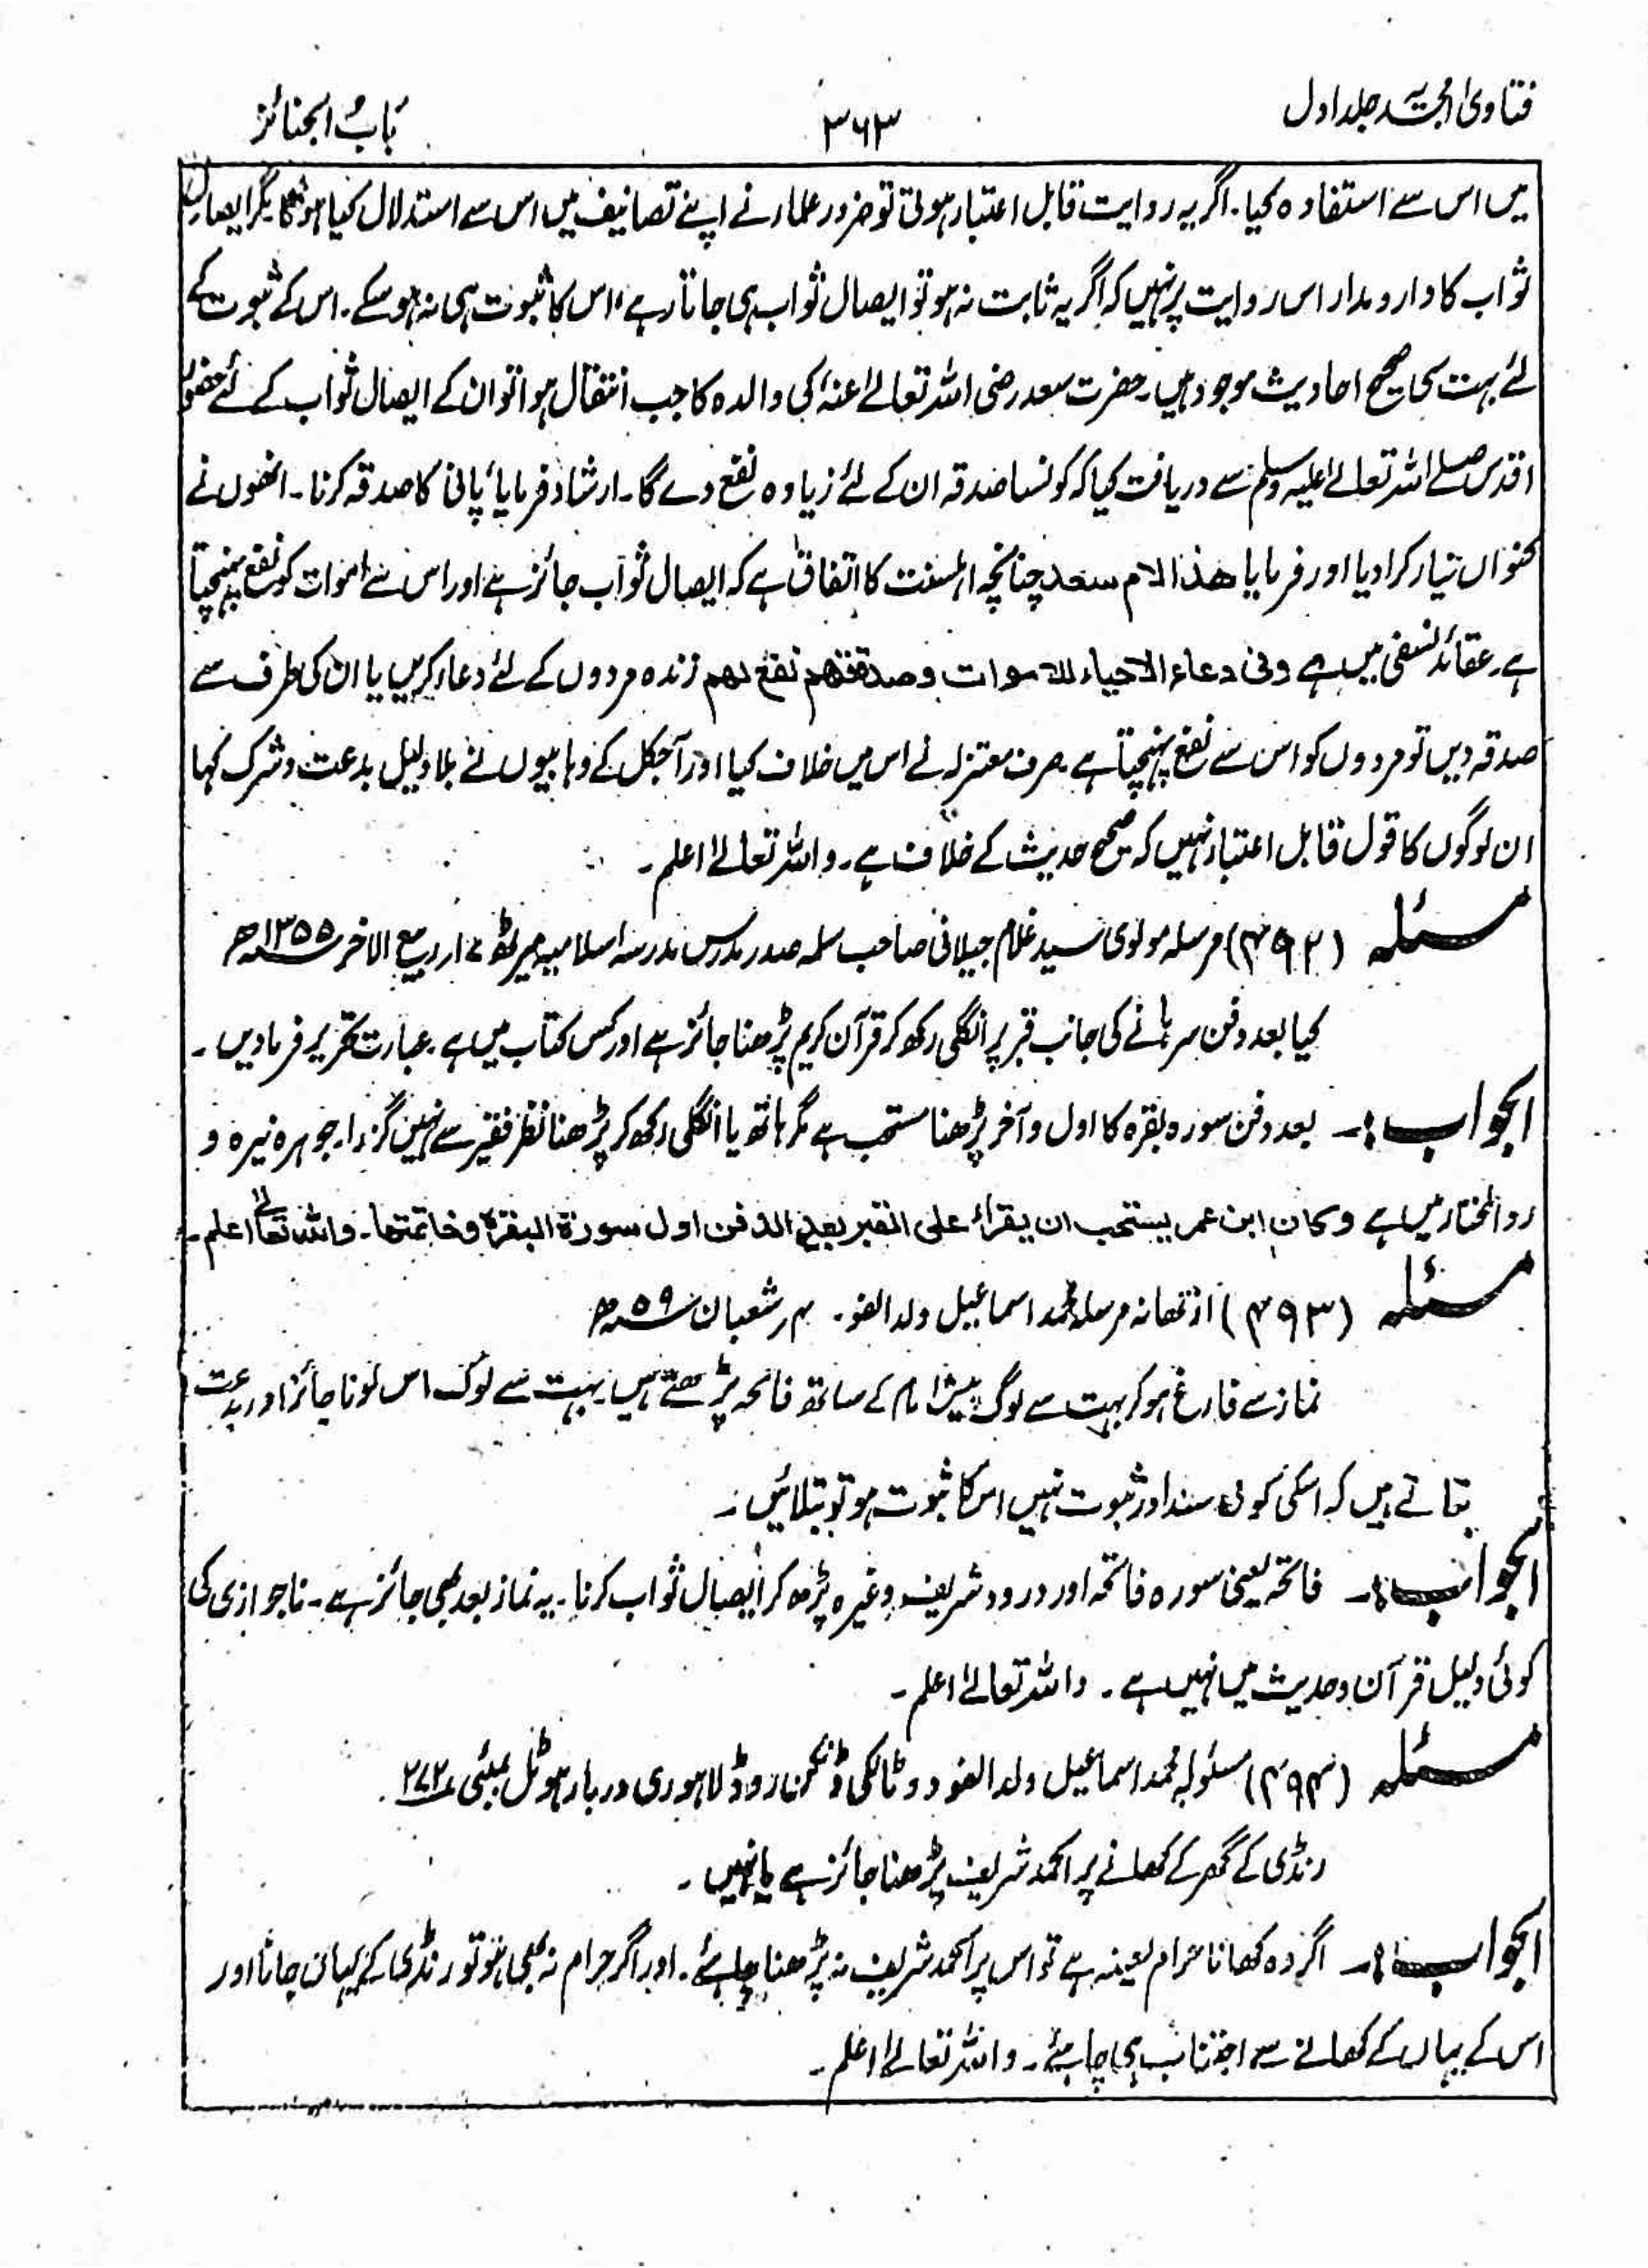 فتاویٰ امجدیہ جلد اول
۳۶۳
بابُ الجنائز
میں اس سے استفادہ کیا۔ اگر یہ روایت قابل اعتبار ہوتی تو ضرور علمار نے اپنے تصانیف میں اس سے استدلال کیا ہوتا مگر ایصال
ثواب کا دارومدار اس روایت پر نہیں کہ اگر یہ ثابت نہ ہو تو ایصال ثواب ہی جاتا رہے، اس کا ثبوت ہی نہ ہو سکے۔ اس کے ثبوت کے
لئے بہت سی صحیح احادیث موجود ہیں۔ حضرت سعد رضی اللہ تعالےٰ عنہ کی والدہ کا جب انتقال ہوا تو ان کے ایصال ثواب کے لئے حضور
اقدس صلے اللہ تعالےٰ علیہ وسلم سے دریافت کیا کہ کونسا صدقہ ان کے لئے زیادہ نفع دے گا۔ ارشاد فرمایا پانی کا صدقہ کرنا۔ انھوں نے
کنواں تیار کرا دیا اور فرمایا هذا لام سعد چنانچہ اہلسنت کا اتفاق ہے کہ ایصال ثواب جائز ہے اور اس سے اموات کو نفع پہنچتا
ہے۔ عقائد نسفی میں ہے وفی دعاء الاحیاء للاموات وصدقتهم نفع لهم زندہ مردوں کے لئے دعار کریں یا ان کی طرف سے
صدقہ دیں تو مردوں کو اس سے نفع پہنچتا ہے۔ صرف معتزلہ نے اس میں خلاف کیا اور آجکل کے وہابیوں نے بلا دلیل بدعت و شرک کہا
ان لوگوں کا قول قابل اعتبار نہیں کہ صحیح حدیث کے خلاف ہے۔ واللہ تعالےٰ اعلم۔
مسئلہ (۴۹۲) مرسلہ مولوی سید غلام جیلانی صاحب سلمہ صدر مدرس مدرسہ اسلامیہ میرٹھ ۷ار ربیع الآخر ۱۳۵۵ھ
کیا بعد دفن سرہانے کی جانب قبر پر انگلی رکھ کر قرآن کریم پڑھنا جائز ہے اور کس کتاب میں ہے۔ عبارت تحریر فرما دیں۔
الجواب:۔ بعد دفن سورہ بقرہ کا اول و آخر پڑھنا مستحب ہے مگر ہاتھ یا انگلی رکھ کر پڑھنا نظر فقیر سے نہیں گزرا۔ جوہرہ نیرہ و
ردالمختار میں ہے وکان ابن عمر یستحب ان یقراء علی القبر بعد الدفن اول سورة البقرة وخاتمتها۔ واللہ تعالےٰ اعلم۔
مسئلہ (۴۹۳) از تھانہ مرسلہ محمد اسماعیل ولد الفو۔ ۴ر شعبان ۵۹ھ
نماز سے فارغ ہو کر بہت سے لوگ پیش امام کے ساتھ فاتحہ پڑھتے ہیں۔ بہت سے لوگ اس کو ناجائز اور بدعت
بتاتے ہیں کہ اسکی کوئی سند اور ثبوت نہیں اس کا ثبوت ہو تو بتلائیں۔
الجواب:۔ فاتحہ یعنی سورہ فاتحہ اور درود شریف وغیرہ پڑھ کر ایصال ثواب کرنا۔ یہ نماز بعد بھی جائز ہے۔ ناجوازی کی
کوئی دلیل قرآن و حدیث میں نہیں ہے۔ واللہ تعالےٰ اعلم۔
مسئلہ (۴۹۴) مسئولہ محمد اسماعیل ولد الفو دو ٹانکی ڈنکن روڈ لاہوری دربار ہوٹل بمبئی ۲۷۲
رنڈی کے گھر کے کھانے پر الحمد شریف پڑھنا جائز ہے یا نہیں۔
الجواب:۔ اگر وہ کھانا حرام بعینہ ہے تو اس پر الحمد شریف نہ پڑھنا چاہئے۔ اور اگر حرام نہ بھی ہو تو رنڈی کے یہاں جانا اور
اس کے یہاں کے کھانے سے اجتناب ہی چاہئے۔ واللہ تعالےٰ اعلم۔